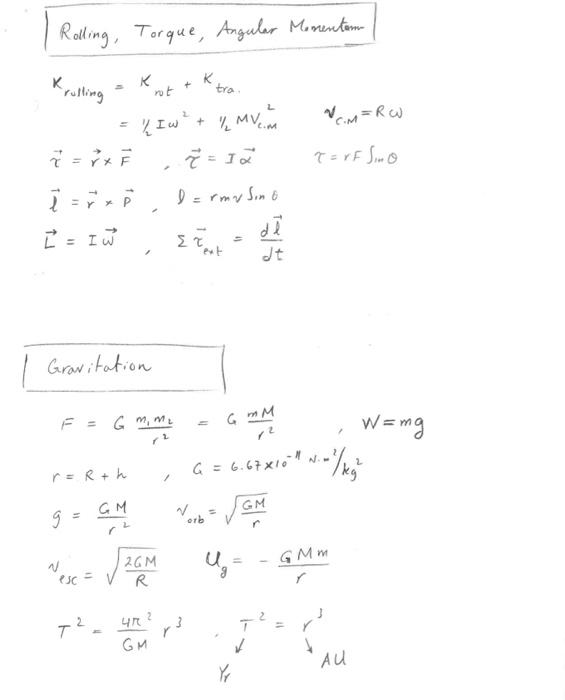 Rolling, Torque, Angular Momentum
K_rolling = K_rot + K_tra.
= ½ Iω² + ½ MV_C.M² V_C.M = Rω
τ⃗ = r⃗ × F⃗ , τ⃗ = Iα⃗ τ = rF Sinθ
l⃗ = r⃗ × P⃗ , l = rmv Sinθ
L⃗ = Iω⃗ , Σ τ⃗_ext = dl⃗/dt
Gravitation
F = G m₁m₂/r² = G mM/r² , W = mg
r = R + h , G = 6.67×10⁻¹¹ N.m²/kg²
g = GM/r² v_orb = √(GM/r)
v_esc = √(2GM/R) U_g = - GMm/r
T² = 4π²/GM r³ , T² = r³
Yr AU